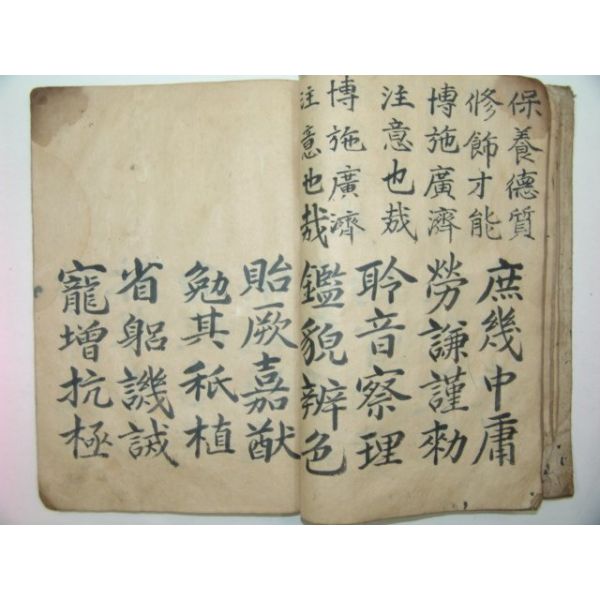 保養德質
修飾才能
博施廣濟
注意也哉
博施廣濟
注意也哉
庶幾中庸
勞謙謹勑
聆音察理
鑑貌辨色
貽厥嘉猷
勉其秖植
省躳譏誡
寵增抗極